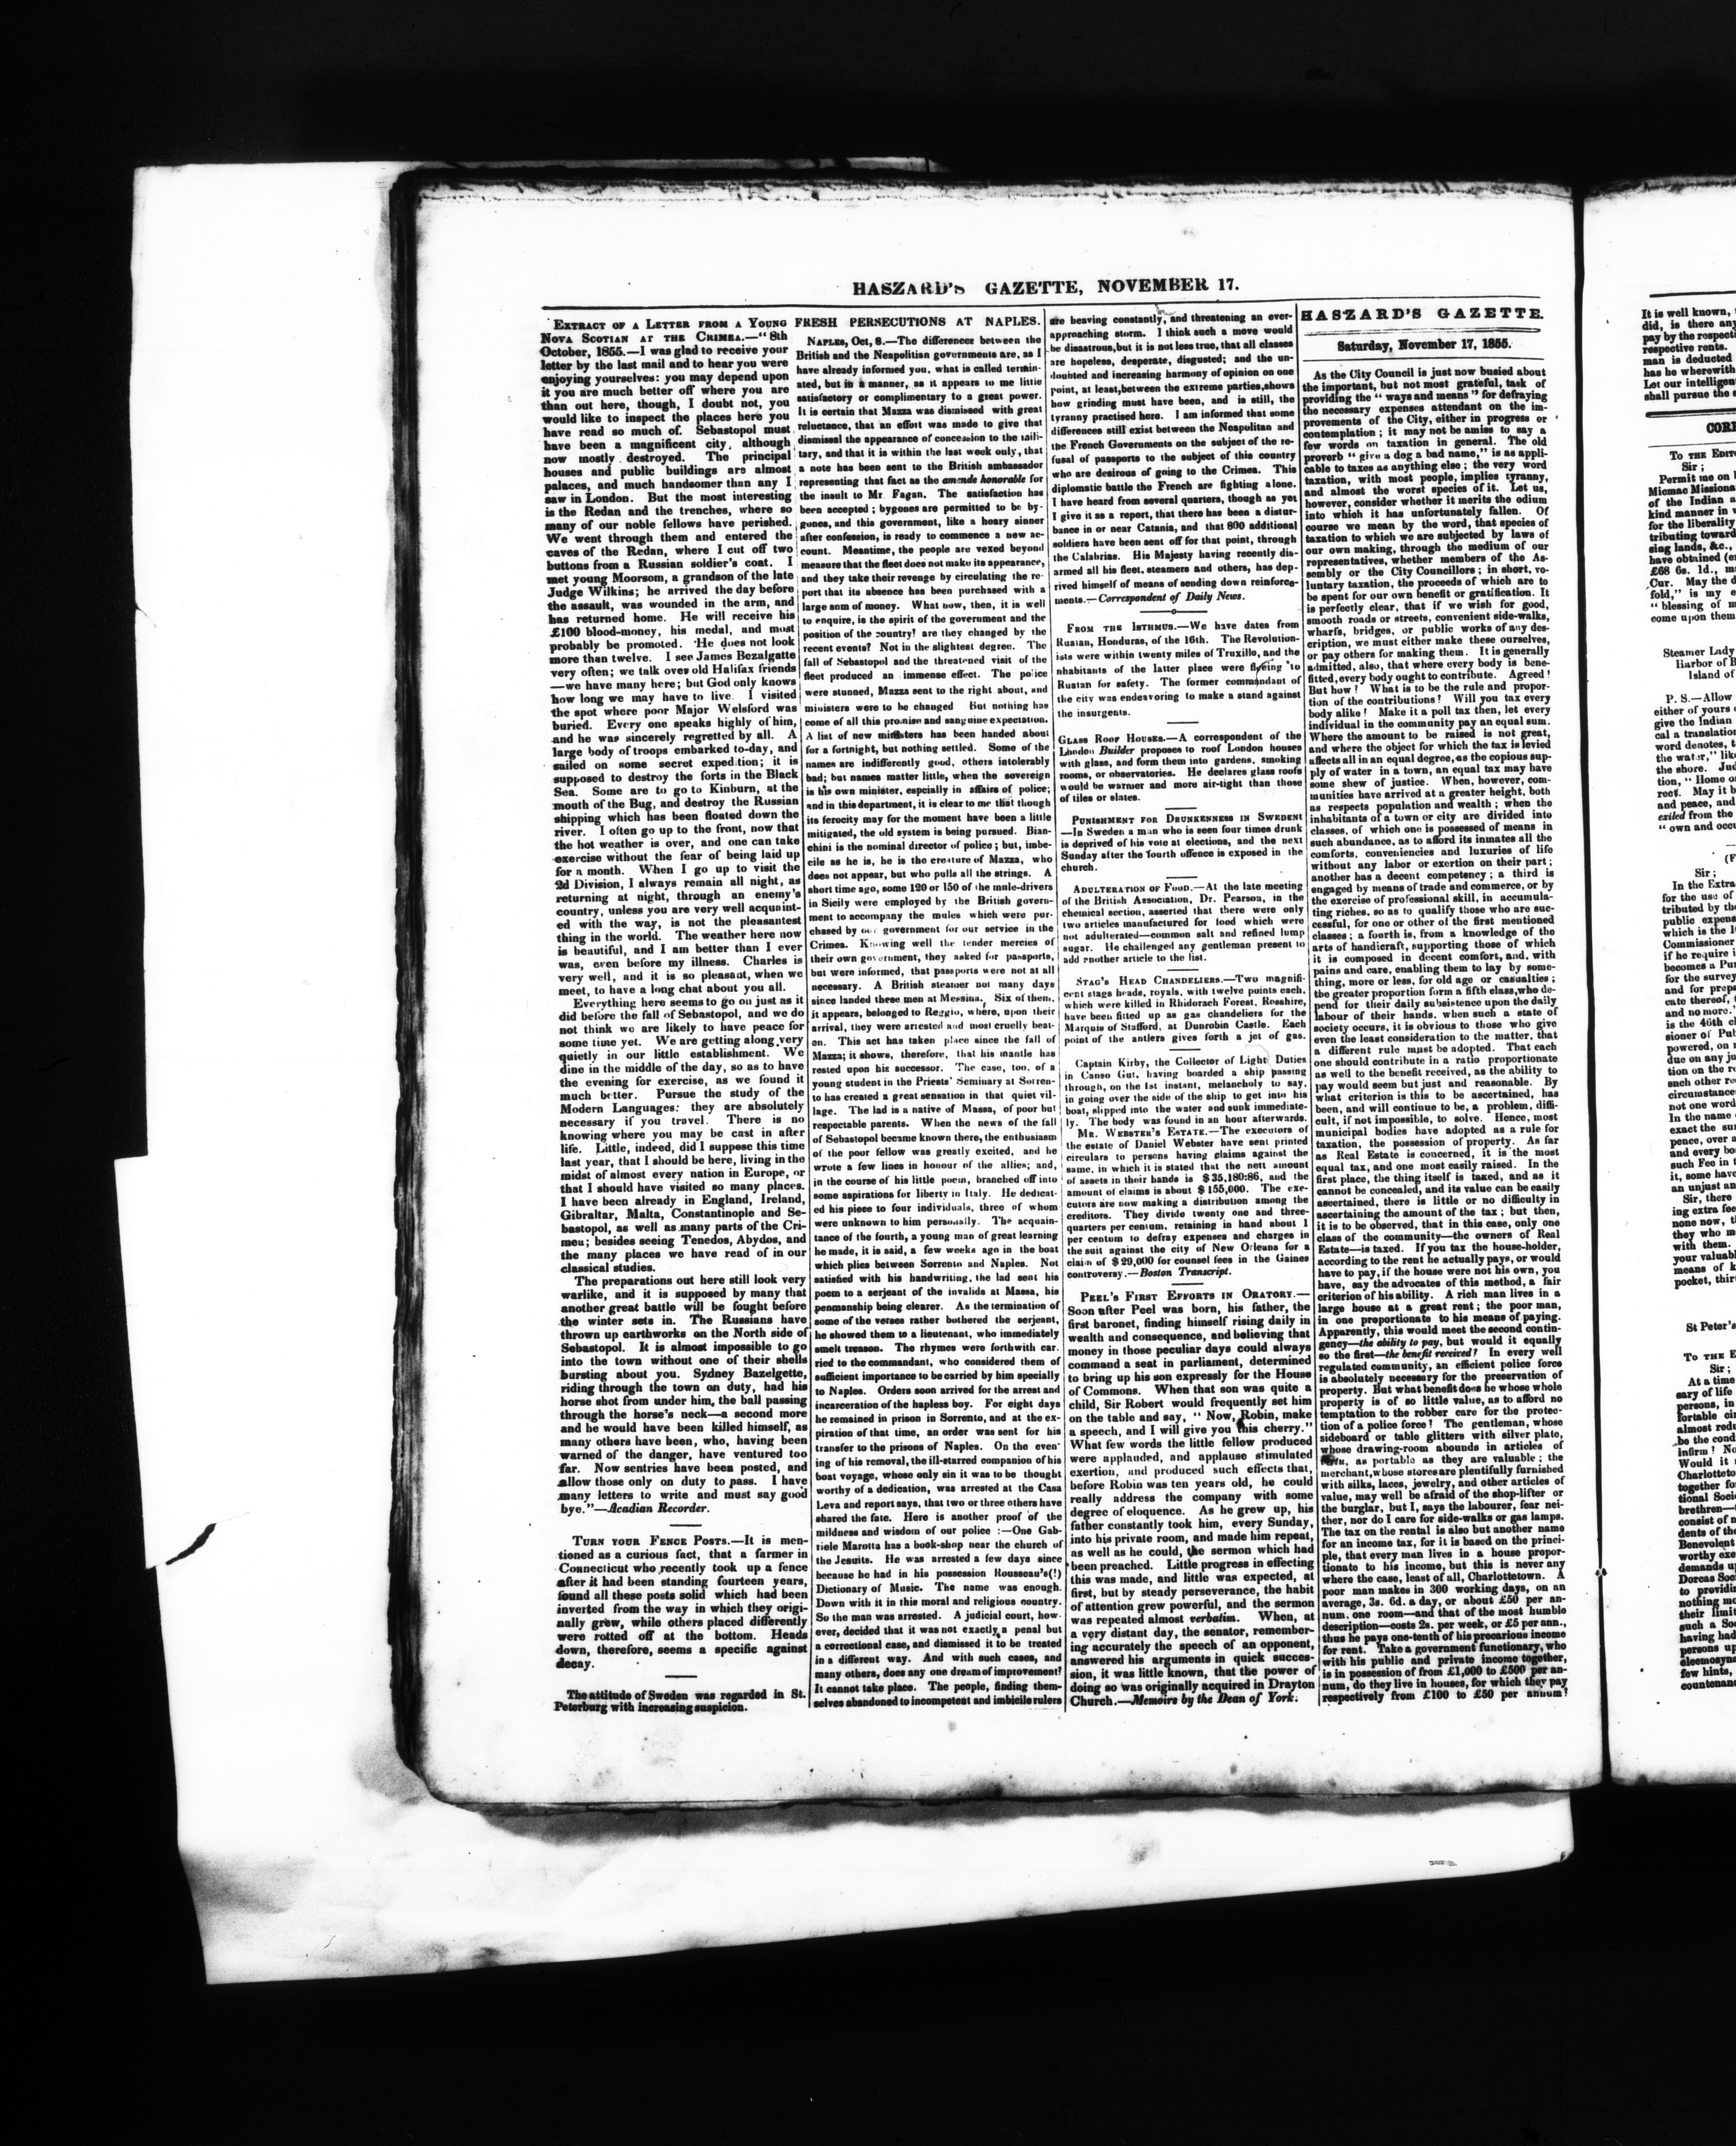 HASZARD'S GAZETTE, NOVEMBER 17.
EXTRACT OF A LETTER FROM A YOUNG
NOVA SCOTIAN AT THE CRIMEA.—"8th
October, 1855.—I was glad to receive your
letter by the last mail and to hear you were
enjoying yourselves: you may depend upon
it you are much better off where you are
than out here, though, I doubt not, you
would like to inspect the places here you
have read so much of. Sebastopol must
have been a magnificent city, although
now mostly destroyed. The principal
houses and public buildings are almost
palaces, and much handsomer than any I
saw in London. But the most interesting
is the Redan and the trenches, where so
many of our noble fellows have perished.
We went through them and entered the
caves of the Redan, where I cut off two
buttons from a Russian soldier's coat. I
met young Moorsom, a grandson of the late
Judge Wilkins; he arrived the day before
the assault, was wounded in the arm, and
has returned home. He will receive his
£100 blood-money, his medal, and most
probably be promoted. He does not look
more than twelve. I see James Bezalgatte
very often; we talk over old Halifax friends
—we have many here; but God only knows
how long we may have to live. I visited
the spot where poor Major Welsford was
buried. Every one speaks highly of him,
and he was sincerely regretted by all. A
large body of troops embarked to-day, and
sailed on some secret expedition; it is
supposed to destroy the forts in the Black
Sea. Some are to go to Kinburn, at the
mouth of the Bug, and destroy the Russian
shipping which has been floated down the
river. I often go up to the front, now that
the hot weather is over, and one can take
exercise without the fear of being laid up
for a month. When I go up to visit the
2d Division, I always remain all night, as
returning at night, through an enemy's
country, unless you are very well acquaint-
ed with the way, is not the pleasantest
thing in the world. The weather here now
is beautiful, and I am better than I ever
was, even before my illness. Charles is
very well, and it is so pleasant, when we
meet, to have a long chat about you all.
Everything here seems to go on just as it
did before the fall of Sebastopol, and we do
not think we are likely to have peace for
some time yet. We are getting along very
quietly in our little establishment. We
dine in the middle of the day, so as to have
the evening for exercise, as we found it
much better. Pursue the study of the
Modern Languages: they are absolutely
necessary if you travel. There is no
knowing where you may be cast in after
life. Little, indeed, did I suppose this time
last year, that I should be here, living in the
midst of almost every nation in Europe, or
that I should have visited so many places.
I have been already in England, Ireland,
Gibraltar, Malta, Constantinople and Se-
bastopol, as well as many parts of the Cri-
mea; besides seeing Tenedos, Abydos, and
the many places we have read of in our
classical studies.
The preparations out here still look very
warlike, and it is supposed by many that
another great battle will be fought before
the winter sets in. The Russians have
thrown up earthworks on the North side of
Sebastopol. It is almost impossible to go
into the town without one of their shells
bursting about you. Sydney Bazelgette,
riding through the town on duty, had his
horse shot from under him, the ball passing
through the horse's neck—a second more
and he would have been killed himself, as
many others have been, who, having been
warned of the danger, have ventured too
far. Now sentries have been posted, and
allow those only on duty to pass. I have
many letters to write and must say good
bye."—Acadian Recorder.
TURN YOUR FENCE POSTS.—It is men-
tioned as a curious fact, that a farmer in
Connecticut who recently took up a fence
after it had been standing fourteen years,
found all these posts solid which had been
inverted from the way in which they origi-
nally grew, while others placed differently
were rotted off at the bottom. Heads
down, therefore, seems a specific against
decay.
The attitude of Sweden was regarded in St.
Peterburg with increasing suspicion.
FRESH PERSECUTIONS AT NAPLES.
NAPLES, Oct, 8.—The differences between the
British and the Neapolitian governments are, as I
have already informed you, what is called termin-
ated, but in a manner, as it appears to me little
satisfactory or complimentary to a great power.
It is certain that Mazza was dismissed with great
reluctance, that an effort was made to give that
dismissal the appearance of concession to the mili-
tary, and that it is within the last week only, that
a note has been sent to the British ambassador
representing that fact as the amende honorable for
the insult to Mr. Fagan. The satisfaction has
been accepted; bygones are permitted to be by-
gones, and this government, like a hoary sinner
after confession, is ready to commence a new ac-
count. Meantime, the people are vexed beyond
measure that the fleet does not make its appearance,
and they take their revenge by circulating the re-
port that its absence has been purchased with a
large sum of money. What now, then, it is well
to enquire, is the spirit of the government and the
position of the country? are they changed by the
recent events? Not in the slightest degree. The
fall of Sebastopol and the threatened visit of the
fleet produced an immense effect. The police
were stunned, Mazza sent to the right about, and
ministers were to be changed But nothing has
come of all this promise and sanguine expectation.
A list of new ministers has been handed about
for a fortnight, but nothing settled. Some of the
names are indifferently good, others intolerably
bad; but names matter little, when the sovereign
is his own minister, especially in affairs of police;
and in this department, it is clear to me that though
its ferocity may for the moment have been a little
mitigated, the old system is being pursued. Bian-
chini is the nominal director of police; but, imbe-
cile as he is, he is the creature of Mazza, who
does not appear, but who pulls all the strings. A
short time ago, some 120 or 150 of the mule-drivers
in Sicily were employed by the British govern-
ment to accompany the mules which were pur-
chased by our government for our service in the
Crimea. Knowing well the tender mercies of
their own government, they asked for passports,
but were informed, that passports were not at all
necessary. A British steamer not many days
since landed these men at Messina. Six of them,
it appears, belonged to Reggio, where, upon their
arrival, they were arrested and most cruelly beat-
en. This act has taken place since the fall of
Mazza; it shows, therefore, that his mantle has
rested upon his successor. The case, too, of a
young student in the Priests' Seminary at Sorren-
to has created a great sensation in that quiet vil-
lage. The lad is a native of Massa, of poor but
respectable parents. When the news of the fall
of Sebastopol became known there, the enthusiasm
of the poor fellow was greatly excited, and he
wrote a few lines in honour of the allies; and,
in the course of his little poem, branched off into
some aspirations for liberty in Italy. He dedicat-
ed his piece to four individuals, three of whom
were unknown to him personally. The acquain-
tance of the fourth, a young man of great learning
he made, it is said, a few weeks ago in the boat
which plies between Sorrento and Naples. Not
satisfied with his handwriting, the lad sent his
poem to a serjeant of the invalids at Massa, his
penmanship being clearer. As the termination of
some of the verses rather bothered the serjeant,
he showed them to a lieutenant, who immediately
smelt treason. The rhymes were forthwith car.
ried to the commandant, who considered them of
sufficient importance to be carried by him specially
to Naples. Orders soon arrived for the arrest and
incarceration of the hapless boy. For eight days
he remained in prison in Sorrento, and at the ex-
piration of that time, an order was sent for his
transfer to the prisons of Naples. On the even-
ing of his removal, the ill-starred companion of his
boat voyage, whose only sin it was to be thought
worthy of a dedication, was arrested at the Casa
Leva and report says, that two or three others have
shared the fate. Here is another proof of the
mildness and wisdom of our police:—One Gab-
riele Marotta has a book-shop near the church of
the Jesuits. He was arrested a few days since
because he had in his possession Rousseau's(!)
Dictionary of Music. The name was enough.
Down with it in this moral and religious country.
So the man was arrested. A judicial court, how-
ever, decided that it was not exactly a penal but
a correctional case, and dismissed it to be treated
in a different way. And with such cases, and
many others, does any one dream of improvement?
It cannot take place. The people, finding them-
selves abandoned to incompetent and imbicile rulers
are heaving constantly, and threatening an ever-
approaching storm. I think such a move would
be disastrous, but it is not less true, that all classes
are hopeless, desperate, disgusted; and the un-
doubted and increasing harmony of opinion on one
point, at least, between the extreme parties, shows
how grinding must have been, and is still, the
tyranny practised here. I am informed that some
differences still exist between the Neapolitan and
the French Governments on the subject of the re-
fusal of passports to the subject of this country
who are desirous of going to the Crimea. This
diplomatic battle the French are fighting alone.
I have heard from several quarters, though as yet
I give it as a report, that there has been a distur-
bance in or near Catania, and that 800 additional
soldiers have been sent off for that point, through
the Calabrias. His Majesty having recently dis-
armed all his fleet, steamers and others, has dep-
rived himself of means of sending down reinforce-
ments.—Correspondent of Daily News.
FROM THE ISTHMUS.—We have dates from
Ruatan, Honduras, of the 16th. The Revolution-
ists were within twenty miles of Truxillo, and the
nhabitants of the latter place were fleeing to
Ruatan for safety. The former commandant of
the city was endeavoring to make a stand against
the insurgents.
GLASS ROOF HOUSES.—A correspondent of the
London Builder proposes to roof London houses
with glass, and form them into gardens, smoking
rooms, or observatories. He declares glass roofs
would be warmer and more air-tight than those
of tiles or slates.
PUNISHMENT FOR DRUNKENNESS IN SWEDENT
—In Sweden a man who is seen four times drunk
is deprived of his vote at elections, and the next
Sunday after the fourth offence is exposed in the
church.
ADULTERATION OF FOOD.—At the late meeting
of the British Association, Dr. Pearson, in the
chemical section, asserted that there were only
two articles manufactured for food which were
not adulterated—common salt and refined lump
sugar. He challenged any gentleman present to
add another article to the list.
STAG'S HEAD CHANDELIERS.—Two magnifi-
cent stags heads, royals, with twelve points each,
which were killed in Rhidorach Forest, Rosshire,
have been fitted up as gas chandeliers for the
Marquis of Stafford, at Dunrobin Castle. Each
point of the antlers gives forth a jet of gas.
Captain Kirby, the Collector of Light Duties
in Canso Gut, having boarded a ship passing
through, on the 1st instant, melancholy to say,
in going over the side of the ship to get into his
boat, slipped into the water and sunk immediate-
ly. The body was found in an hour afterwards.
MR. WEBSTER'S ESTATE.—The executors of
the estate of Daniel Webster have sent printed
circulars to persons having claims against the
same, in which it is stated that the nett amount
of assets in their hands is $35,180:86, and the
amount of claims is about $155,000. The exe-
cutors are now making a distribution among the
creditors. They divide twenty one and three-
quarters per centum, retaining in hand about 1
per centum to defray expenses and charges in
the suit against the city of New Orleans for a
claim of $29,000 for counsel fees in the Gaines
controversy.—Boston Transcript.
PEEL'S FIRST EFFORTS IN ORATORY.—
Soon after Peel was born, his father, the
first baronet, finding himself rising daily in
wealth and consequence, and believing that
money in those peculiar days could always
command a seat in parliament, determined
to bring up his son expressly for the House
of Commons. When that son was quite a
child, Sir Robert would frequently set him
on the table and say, "Now, Robin, make
a speech, and I will give you this cherry."
What few words the little fellow produced
were applauded, and applause stimulated
exertion, and produced such effects that,
before Robin was ten years old, he could
really address the company with some
degree of eloquence. As he grew up, his
father constantly took him, every Sunday,
into his private room, and made him repeat,
as well as he could, the sermon which had
been preached. Little progress in effecting
this was made, and little was expected, at
first, but by steady perseverance, the habit
of attention grew powerful, and the sermon
was repeated almost verbatim. When, at
a very distant day, the senator, remember-
ing accurately the speech of an opponent,
answered his arguments in quick succes-
sion, it was little known, that the power of
doing so was originally acquired in Drayton
Church.—Memoirs by the Dean of York.
HASZARD'S GAZETTE.
Saturday, November 17, 1855.
As the City Council is just now busied about
the important, but not most grateful, task of
providing the "ways and means" for defraying
the necessary expenses attendant on the im-
provements of the City, either in progress or
contemplation; it may not be amiss to say a
few words on taxation in general. The old
proverb "give a dog a bad name," is as appli-
cable to taxes as anything else; the very word
taxation, with most people, implies tyranny,
and almost the worst species of it. Let us,
however, consider whether it merits the odium
into which it has unfortunately fallen. Of
course we mean by the word, that species of
taxation to which we are subjected by laws of
our own making, through the medium of our
representatives, whether members of the As-
sembly or the City Councillors; in short, vo-
luntary taxation, the proceeds of which are to
be spent for our own benefit or gratification. It
is perfectly clear, that if we wish for good,
smooth roads or streets, convenient side-walks,
wharfs, bridges, or public works of any des-
cription, we must either make these ourselves,
or pay others for making them. It is generally
admitted, also, that where every body is bene-
fitted, every body ought to contribute. Agreed!
But how? What is to be the rule and propor-
tion of the contributions? Will you tax every
body alike? Make it a poll tax then, let every
individual in the community pay an equal sum.
Where the amount to be raised is not great,
and where the object for which the tax is levied
affects all in an equal degree, as the copious sup-
ply of water in a town, an equal tax may have
some shew of justice. When, however, com-
munities have arrived at a greater height, both
as respects population and wealth; when the
inhabitants of a town or city are divided into
classes, of which one is possessed of means in
such abundance, as to afford its inmates all the
comforts, conveniencies and luxuries of life
without any labor or exertion on their part;
another has a decent competency; a third is
engaged by means of trade and commerce, or by
the exercise of professional skill, in accumula-
ting riches, so as to qualify those who are suc-
cessful, for one or other of the first mentioned
classes; a fourth is, from a knowledge of the
arts of handicraft, supporting those of which
it is composed in decent comfort, and, with
pains and care, enabling them to lay by some-
thing, more or less, for old age or casualties;
the greater proportion form a fifth class, who de-
pend for their daily subsistence upon the daily
labour of their hands, when such a state of
society occurs, it is obvious to those who give
even the least consideration to the matter, that
a different rule must be adopted. That each
one should contribute in a ratio proportionate
as well to the benefit received, as the ability to
pay would seem but just and reasonable. By
what criterion is this to be ascertained, has
been, and will continue to be, a problem, diffi-
cult, if not impossible, to solve. Hence, most
municipal bodies have adopted as a rule for
taxation, the possession of property. As far
as Real Estate is concerned, it is the most
equal tax, and one most easily raised. In the
first place, the thing itself is taxed, and as it
cannot be concealed, and its value can be easily
ascertained, there is little or no difficulty in
ascertaining the amount of the tax; but then,
it is to be observed, that in this case, only one
class of the community—the owners of Real
Estate—is taxed. If you tax the house-holder,
according to the rent he actually pays, or would
have to pay, if the house were not his own, you
have, say the advocates of this method, a fair
criterion of his ability. A rich man lives in a
large house at a great rent; the poor man,
in one proportionate to his means of paying.
Apparently, this would meet the second contin-
gency—the ability to pay, but would it equally
so the first—the benefit received? In every well
regulated community, an efficient police force
is absolutely necessary for the preservation of
property. But what benefit does he whose whole
property is of so little value, as to afford no
temptation to the robber care for the protec-
tion of a police force? The gentleman, whose
sideboard or table glitters with silver plate,
whose drawing-room abounds in articles of
as portable as they are valuable; the
merchant, whose stores are plentifully furnished
with silks, laces, jewelry, and other articles of
value, may well be afraid of the shop-lifter or
the burglar, but I, says the labourer, fear nei-
ther, nor do I care for side-walks or gas lamps.
The tax on the rental is also but another name
for an income tax, for it is based on the princi-
ple, that every man lives in a house propor-
tionate to his income, but this is never any
where the case, least of all, Charlottetown. A
poor man makes in 300 working days, on an
average, 3s. 6d. a day, or about £50 per an-
num, one room—and that of the most humble
description—costs 2s. per week, or £5 per ann.,
thus he pays one-tenth of his precarious income
for rent. Take a government functionary, who
with his public and private income together,
is in possession of from £1,000 to £500 per an-
num, do they live in houses, for which they pay
respectively from £100 to £50 per annum?
It is well known,
did, is there any
pay by the respecti
respective rents.
man is deducted
has he wherewith
Let our intelligen
shall pursue the s
TO THE EDITO
Sir;
Permit me on
Micmac Missiona
of the Indian a
kind manner in
for the liberality
tributing toward
sing lands, &c.,
have obtained
£68 6s. 1d.,
Cur. May the
fold," is my
"blessing of
come upon them
Steamer Lady
Harbor of
Island of
P. S.—Allow
either of yours
give the Indian
cal a translation
word denotes,
the water," like
the shore.
tion, "Home
rect. May it
and peace, and
exiled from the
"own and occu
Sir;
In the Extra
for the use of
tributed by the
public expens
which is the
Commissioner
if he require
becomes a Pu
for the survey
and for prepa
cate thereof,
and no more."
is the 46th
sioner of Pub
powered, on
due on any
tion on the
such other
circumstance
not one word
In the name
exact the su
pence, over
and every bo
such Fee in
it, some have
an unjust an
Sir, there
ing extra fee
none now,
they who
with them.
your valuabl
means of
pocket, thir
St Peter's
TO THE
Sir;
At a time
sary of life
persons, in
fortable cir
almost redu
be the cond
infirm? No
Would it
Charlotteto
together fo
tional Socie
brethren—
consist of
dents of the
Benevolent
worthy exe
demands
Dorcas Soc
to providin
nothing mo
their limit
such a Soc
having had
persons up
eleemosyn
few hints,
countenanc